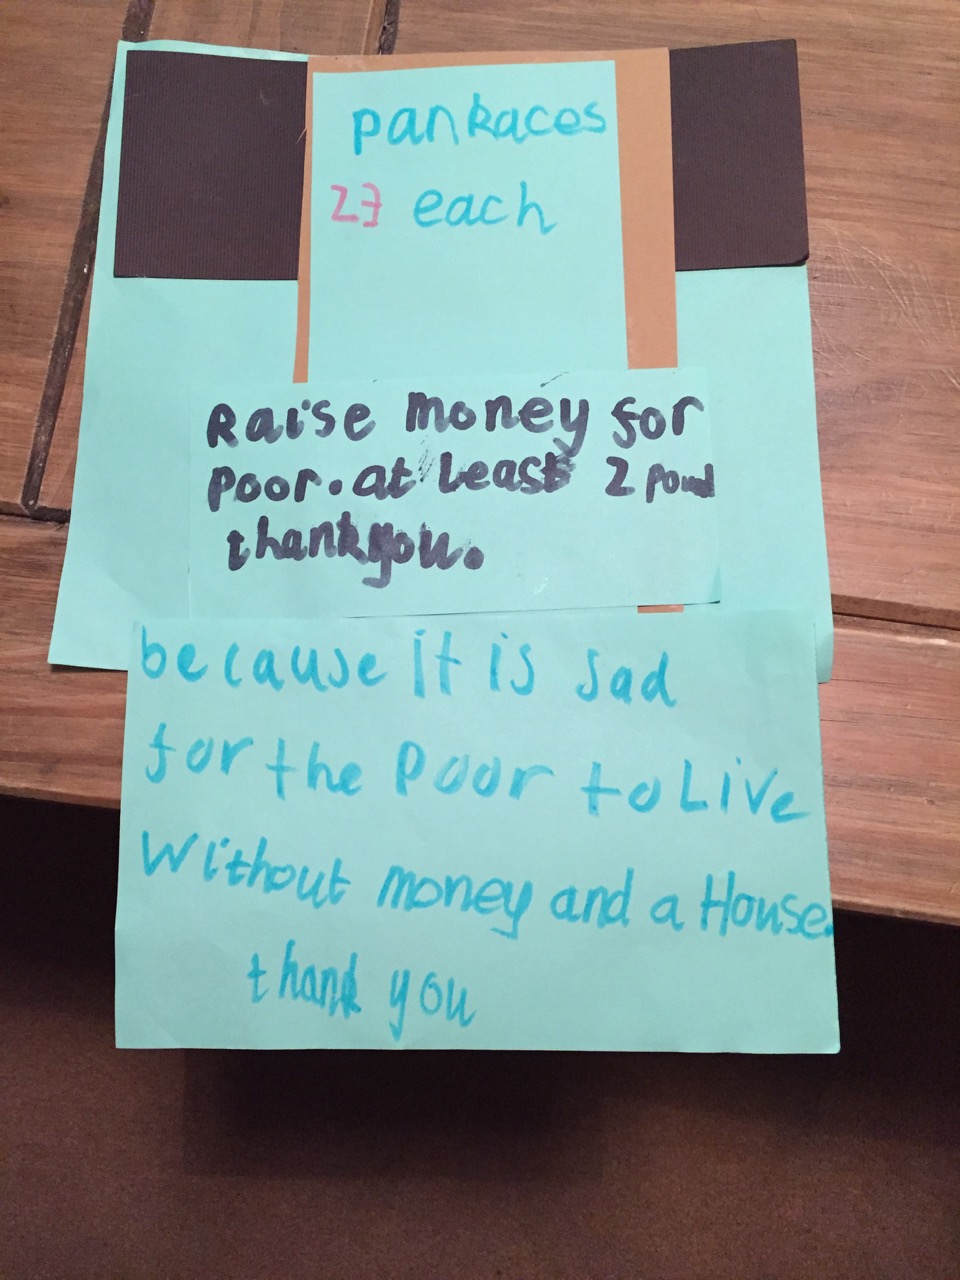 pankaces
23 each
Raise money for
poor. at least 2 pound
thankyou.
because it is sad
for the poor to Live
Without money and a House.
thank you